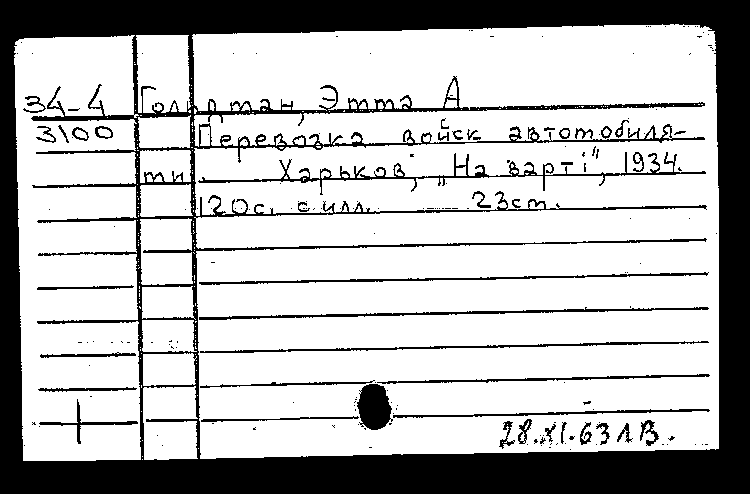 34-4 Гольдтман, Этта А
3100 Перевозка войск автомобиля-
ми. Харьков, „На варті", 1934.
120с. с илл. 23см.
28.XI.63 ЛВ.